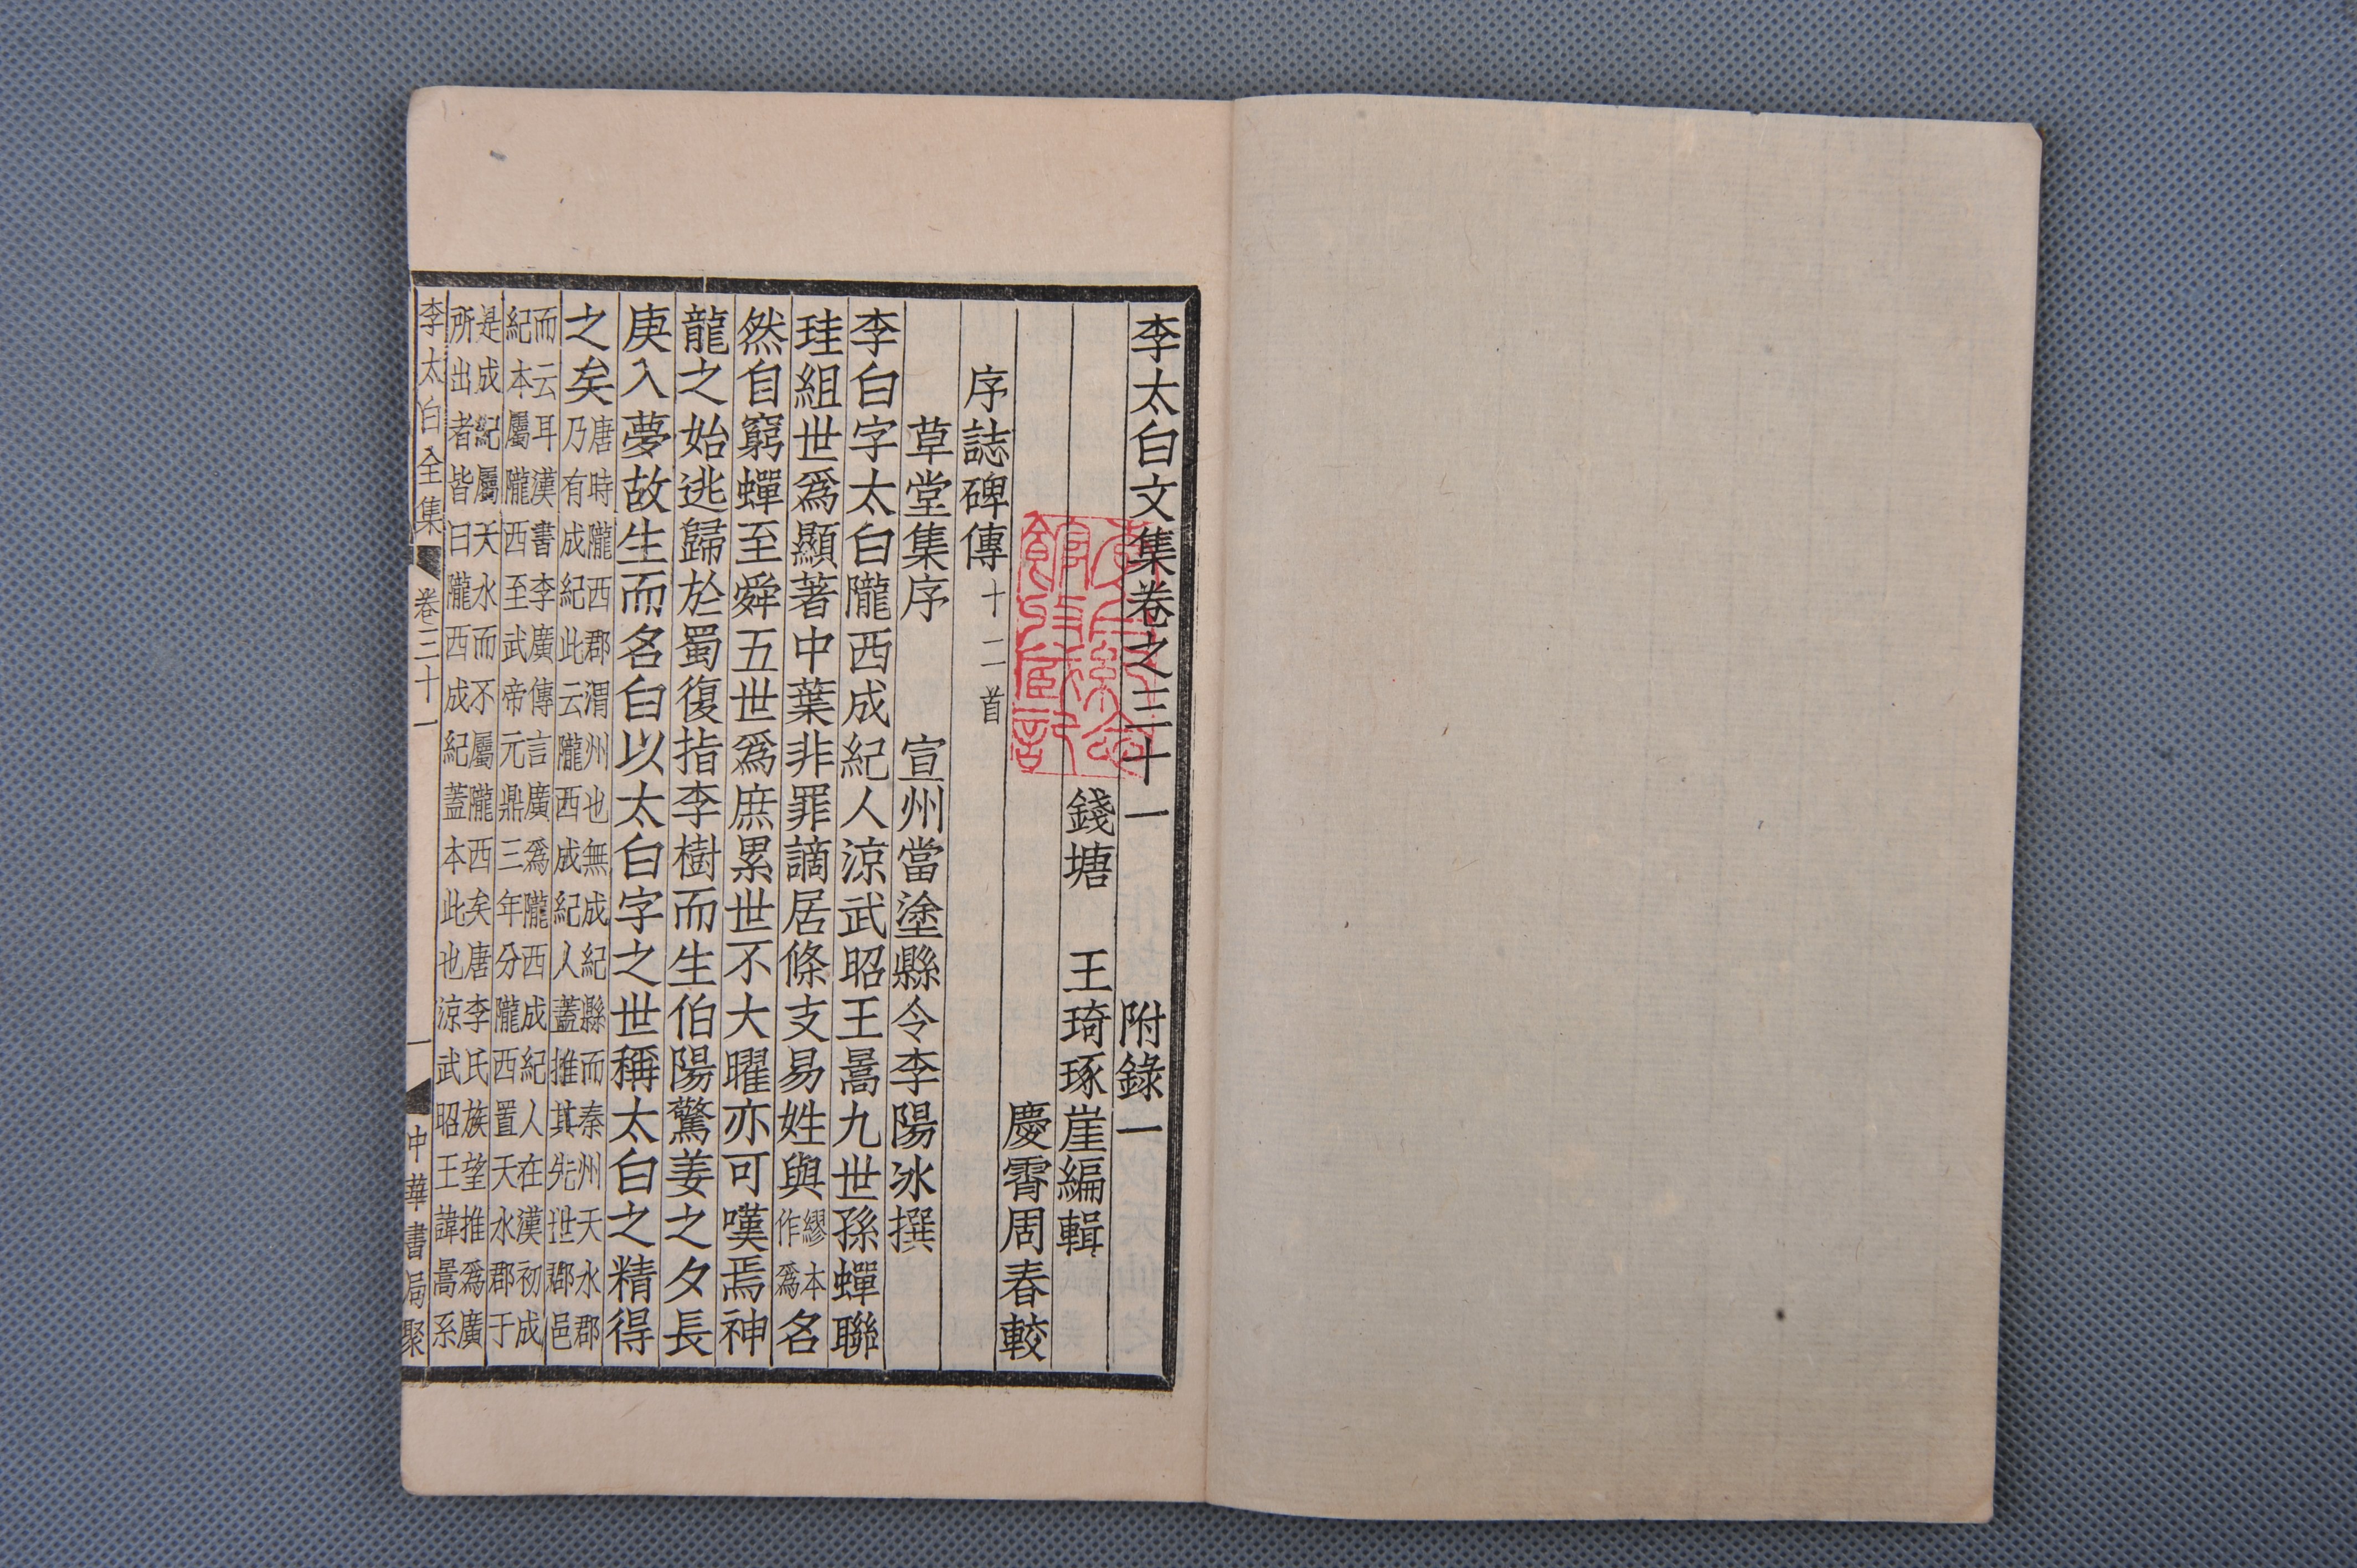 李太白文集卷之三十一　附錄一
錢塘　王琦琢崖編輯
慶霄周春較
序誌碑傳十二首
草堂集序　宣州當塗縣令李陽冰撰
李白字太白隴西成紀人涼武昭王暠九世孫蟬聯
珪組世爲顯著中葉非罪謫居條支易姓與繆本作爲名
然自窮蟬至舜五世爲庶累世不大曜亦可嘆焉神
龍之始逃歸於蜀復指李樹而生伯陽驚姜之夕長
庚入夢故生而名白以太白字之世稱太白之精得
之矣唐時隴西郡渭州也無成紀縣而秦州天水郡
乃有成紀此云隴西成紀人蓋推其先世郡邑
而云耳漢書李廣傳言廣爲隴西成紀人在漢初成
紀本屬隴西至武帝元鼎三年分隴西置天水郡于
是成紀屬天水而不屬隴西矣唐李氏族望推爲廣
所出者皆曰隴西成紀蓋本此也涼武昭王諱暠系
李太白全集　卷三十一　一　中華書局聚